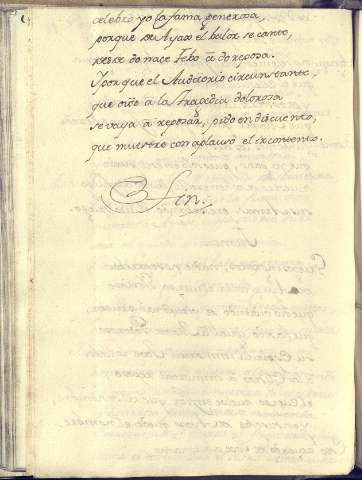 celebro yo la fama generosa,
porque de Ayax el valor se cante,
desde do nace Febo a do reposa.
Y porque el Auditorio circunstante,
que oiò a la Tragedia dolorosa
se vaya a reposar, pido en descuento,
que muestre con aplauso el
Fin.